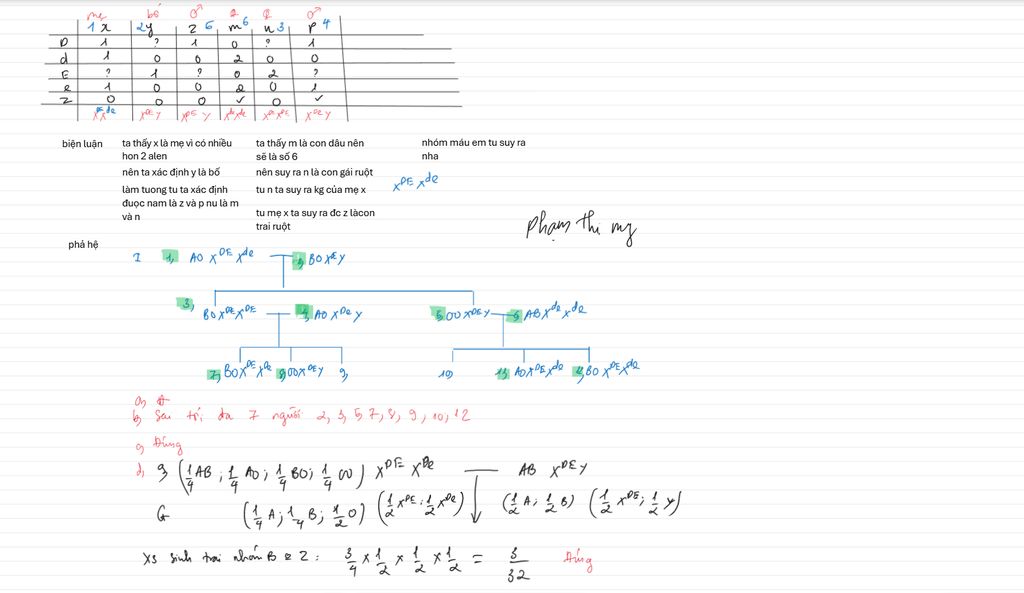 mẹ bố ♂ ♀ ♀ ♂
1 x 2 y z 5 m 6 n 3 p 4
D 1 ? 1 0 ? 1
d 1 0 0 2 0 0
E ? 1 ? 0 2 ?
e 1 0 0 2 0 1
Z 0 0 0 ✓ 0 ✓
X^DE X^de X^DE Y X^DE Y X^de X^de X^DE X^DE X^De Y
biện luận
ta thấy x là mẹ vì có nhiều
hon 2 alen
nên ta xác định y là bố
làm tuong tu ta xác định
đuọc nam là z và p nu là m
và n
ta thấy m là con dâu nên
sẽ là số 6
nên suy ra n là con gái ruột
tu n ta suy ra kg của mẹ x
tu mẹ x ta suy ra đc z làcon
trai ruột
nhóm máu em tu suy ra
nha
X^DE X^de
Phạm thi my
phả hệ
I 1, AO X^DE X^de BO X^DE Y
3, BO X^DE X^DE 4, AO X^De Y 5, OO X^DE Y AB X^de X^de
7, BO X^DE X^De 8, OO X^DE Y 9, 10, 11, AO X^DE X^de 12, BO X^DE X^de
b, Sai tối đa 7 người 2, 3, 5, 7, 8, 9, 10, 12
c, Đúng
d, 9 (1/4 AB ; 1/4 AO ; 1/4 BO ; 1/4 OO) X^DE X^De AB X^DE Y
G (1/4 A ; 1/4 B ; 1/2 O) (1/2 X^DE ; 1/2 X^De) (1/2 A ; 1/2 B) (1/2 X^DE ; 1/2 Y)
XS sinh trai nhóm B e Z : 3/4 × 1/2 × 1/2 × 1/2 = 3/32 Đúng